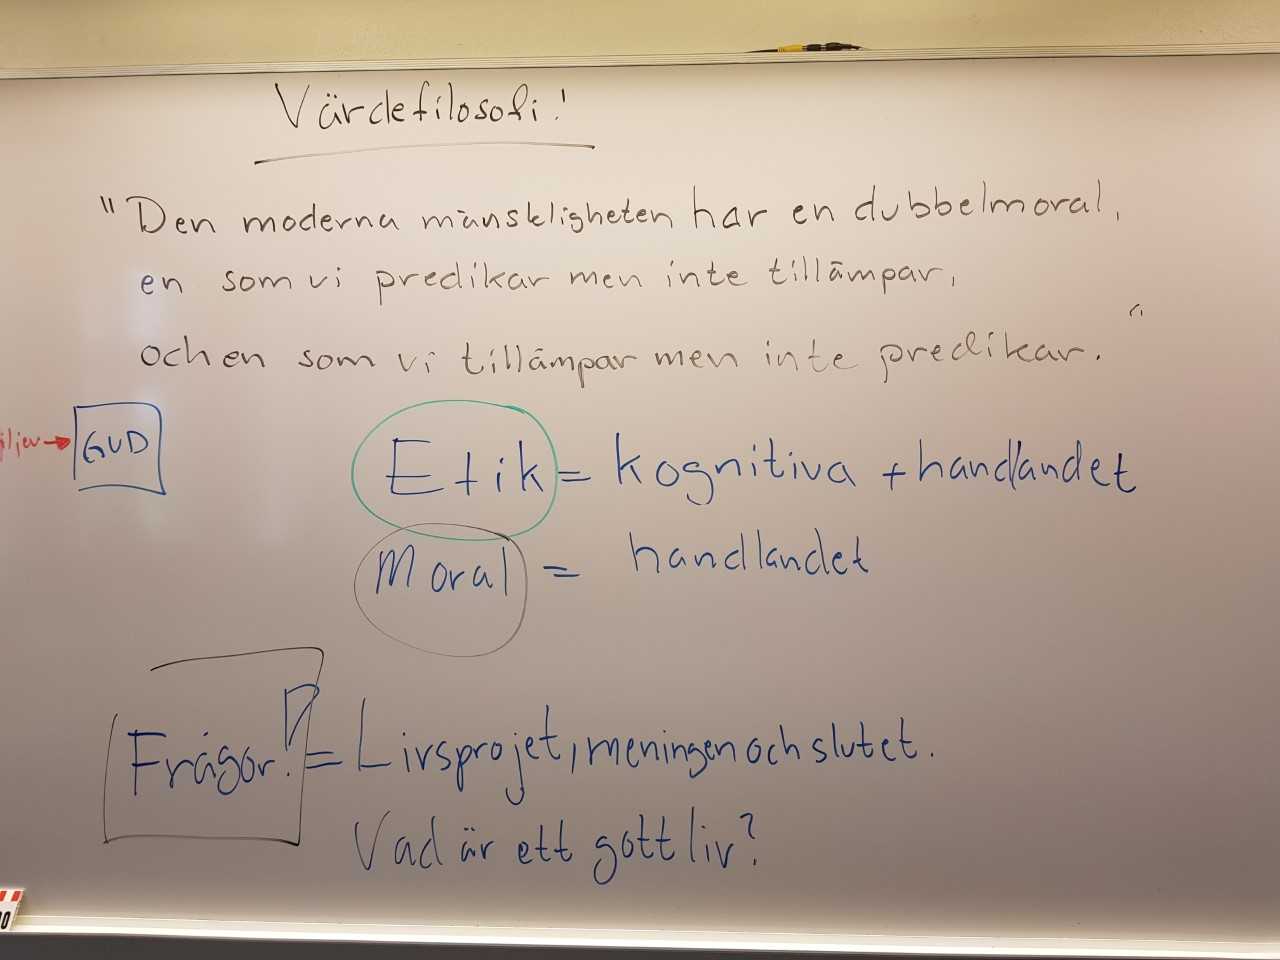 Värdefilosofi!
"Den moderna mänskligheten har en dubbelmoral,
en som vi predikar men inte tillämpar,
och en som vi tillämpar men inte predikar."
GUD
Etik = kognitiva + handlandet
Moral = handlandet
Frågor!? = Livsprojet, meningen och slutet.
Vad är ett gott liv?